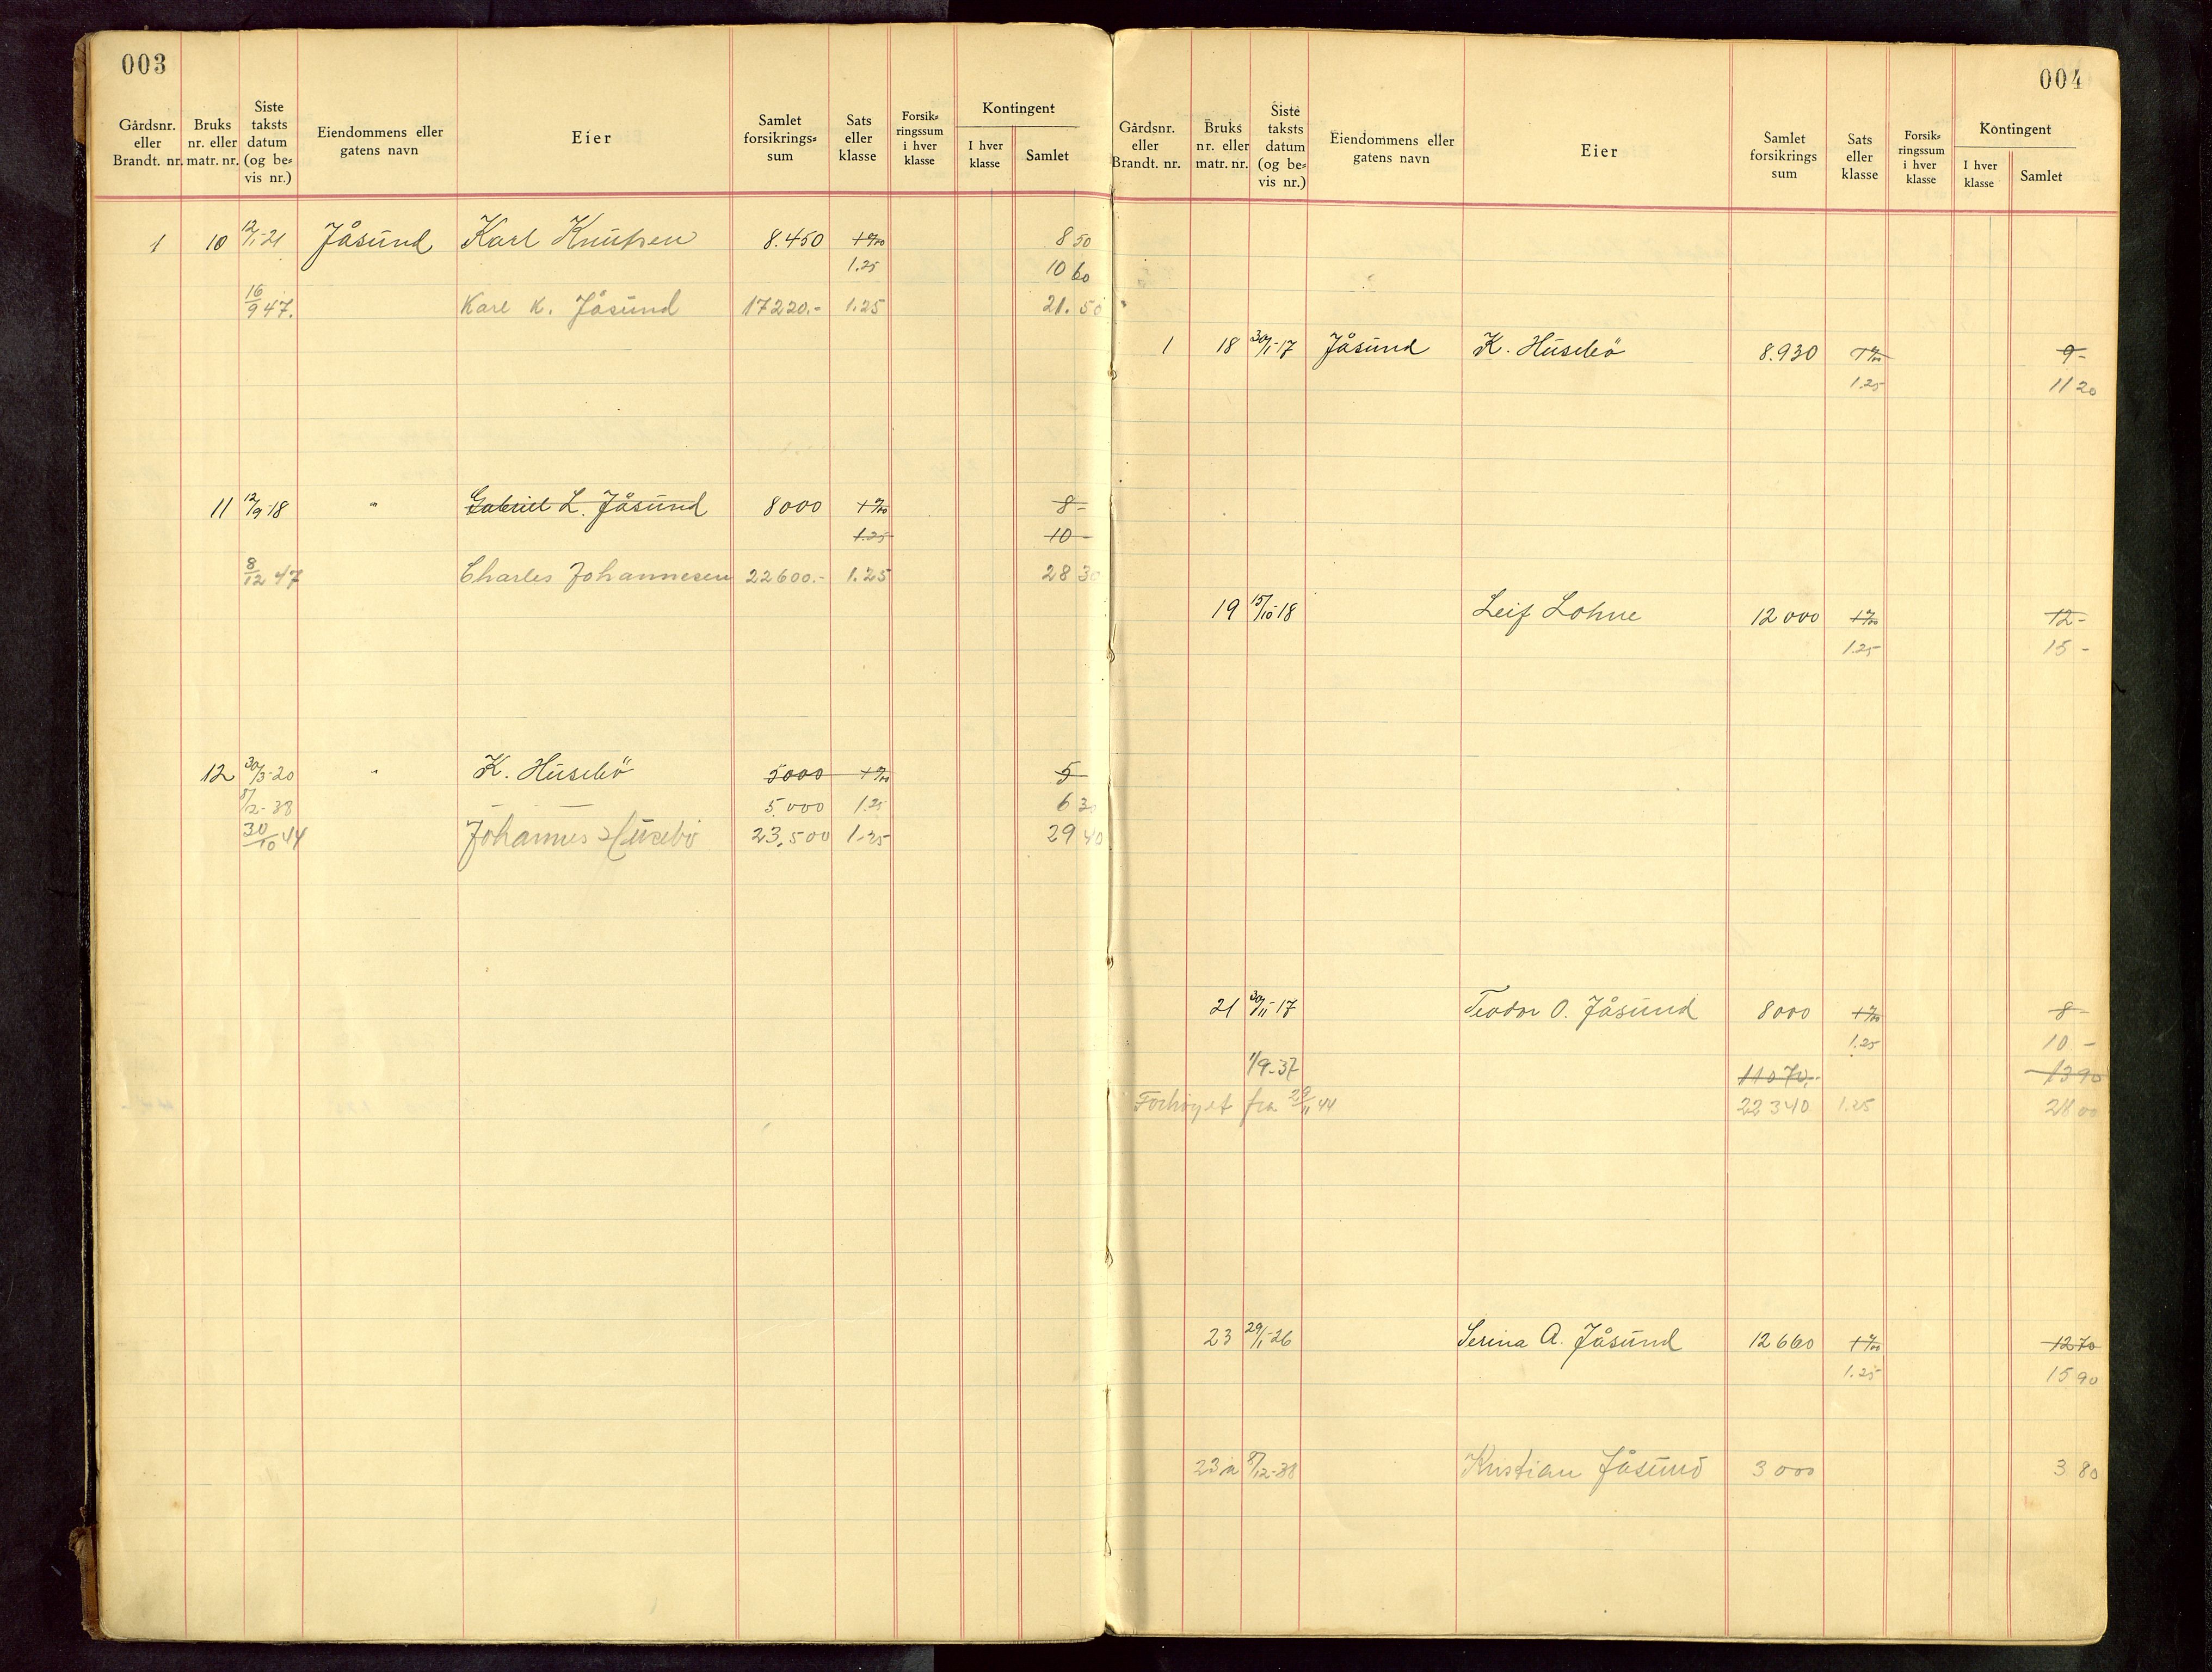 003
Gårdsnr. eller Brandt. nr. | Bruks nr. eller matr. nr. | Siste taksts datum (og bevis nr.) | Eiendommens eller gatens navn | Eier | Samlet forsikrings=sum | Sats eller klasse | Forsik=ringssum i hver klasse | Kontingent I hver klasse | Samlet
1 10 12/1-21 Jåsund Karl Knutsen 8.450 1 0/00 8 50
1.25 10 60
16/9 47. Karl K. Jåsund 17220.- 1.25 21.50
11 12/9-18 " Gabriel L. Jåsund 8000 1 0/00 8-
1.25 10-
8/12 47 Charles Johannesen 22600.- 1.25 28 30
12 30/3-20 " K. Husebö 5000 1 0/00 5-
8/12-38 5.000 1.25 6 30
30/10 44 Johannes Husebö 23,500 1.25 29 40
004
Gårdsnr. eller Brandt. nr. | Bruks nr. eller matr. nr. | Siste taksts datum (og be=vis nr.) | Eiendommens eller gatens navn | Eier | Samlet forsikrings sum | Sats eller klasse | Forsik=ringssum i hver klasse | Kontingent I hver klasse | Samlet
1 18 30/1-17 Jåsund K. Husebö 8.930 1 0/00 9-
1.25 11 20
19 15/10-18 Leif Lohne 12000 1 0/00 12-
1.25 15-
21 30/11-17 Teodor O. Jåsund 8000 1 0/00 8-
1.25 10-
1/9-37 11070.- 13 90
Forhöyet fra 29/11 44 22340 1.25 28 00
23 29/1-26 Serina A. Jåsund 12660 1 0/00 12 70
1.25 15 90
23 a 8/12-38 Kristian Jåsund 3000 3 80